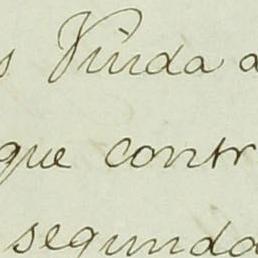 s Vinda a
que contr
segunda